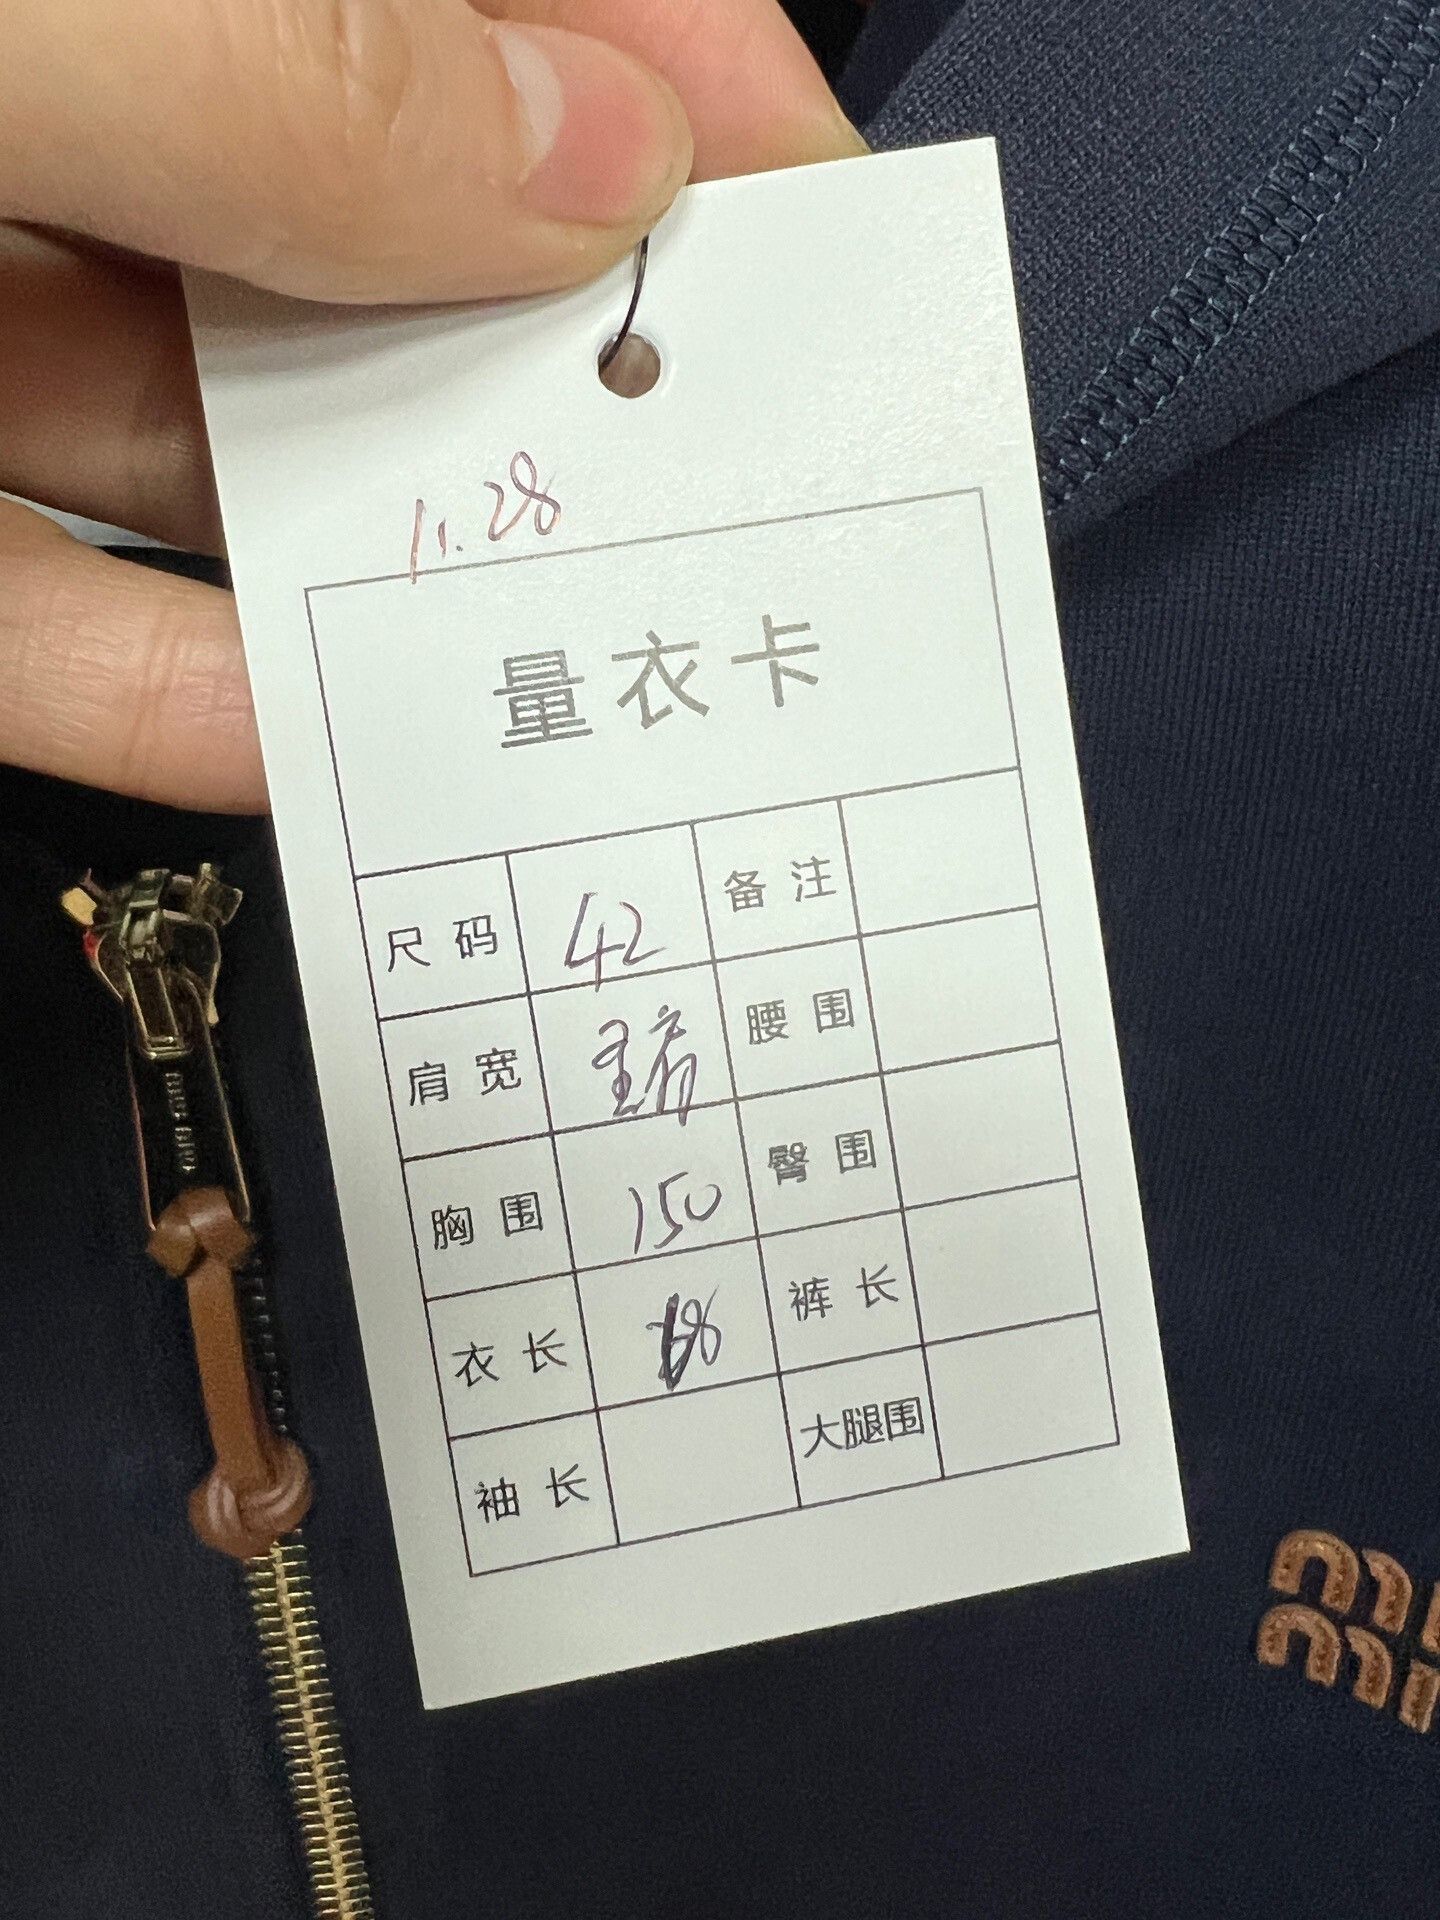 11.28
量衣卡
尺码 42 备注
肩宽 腰围
胸围 150 臀围
衣长 68 裤长
袖长 大腿围
miu
miu